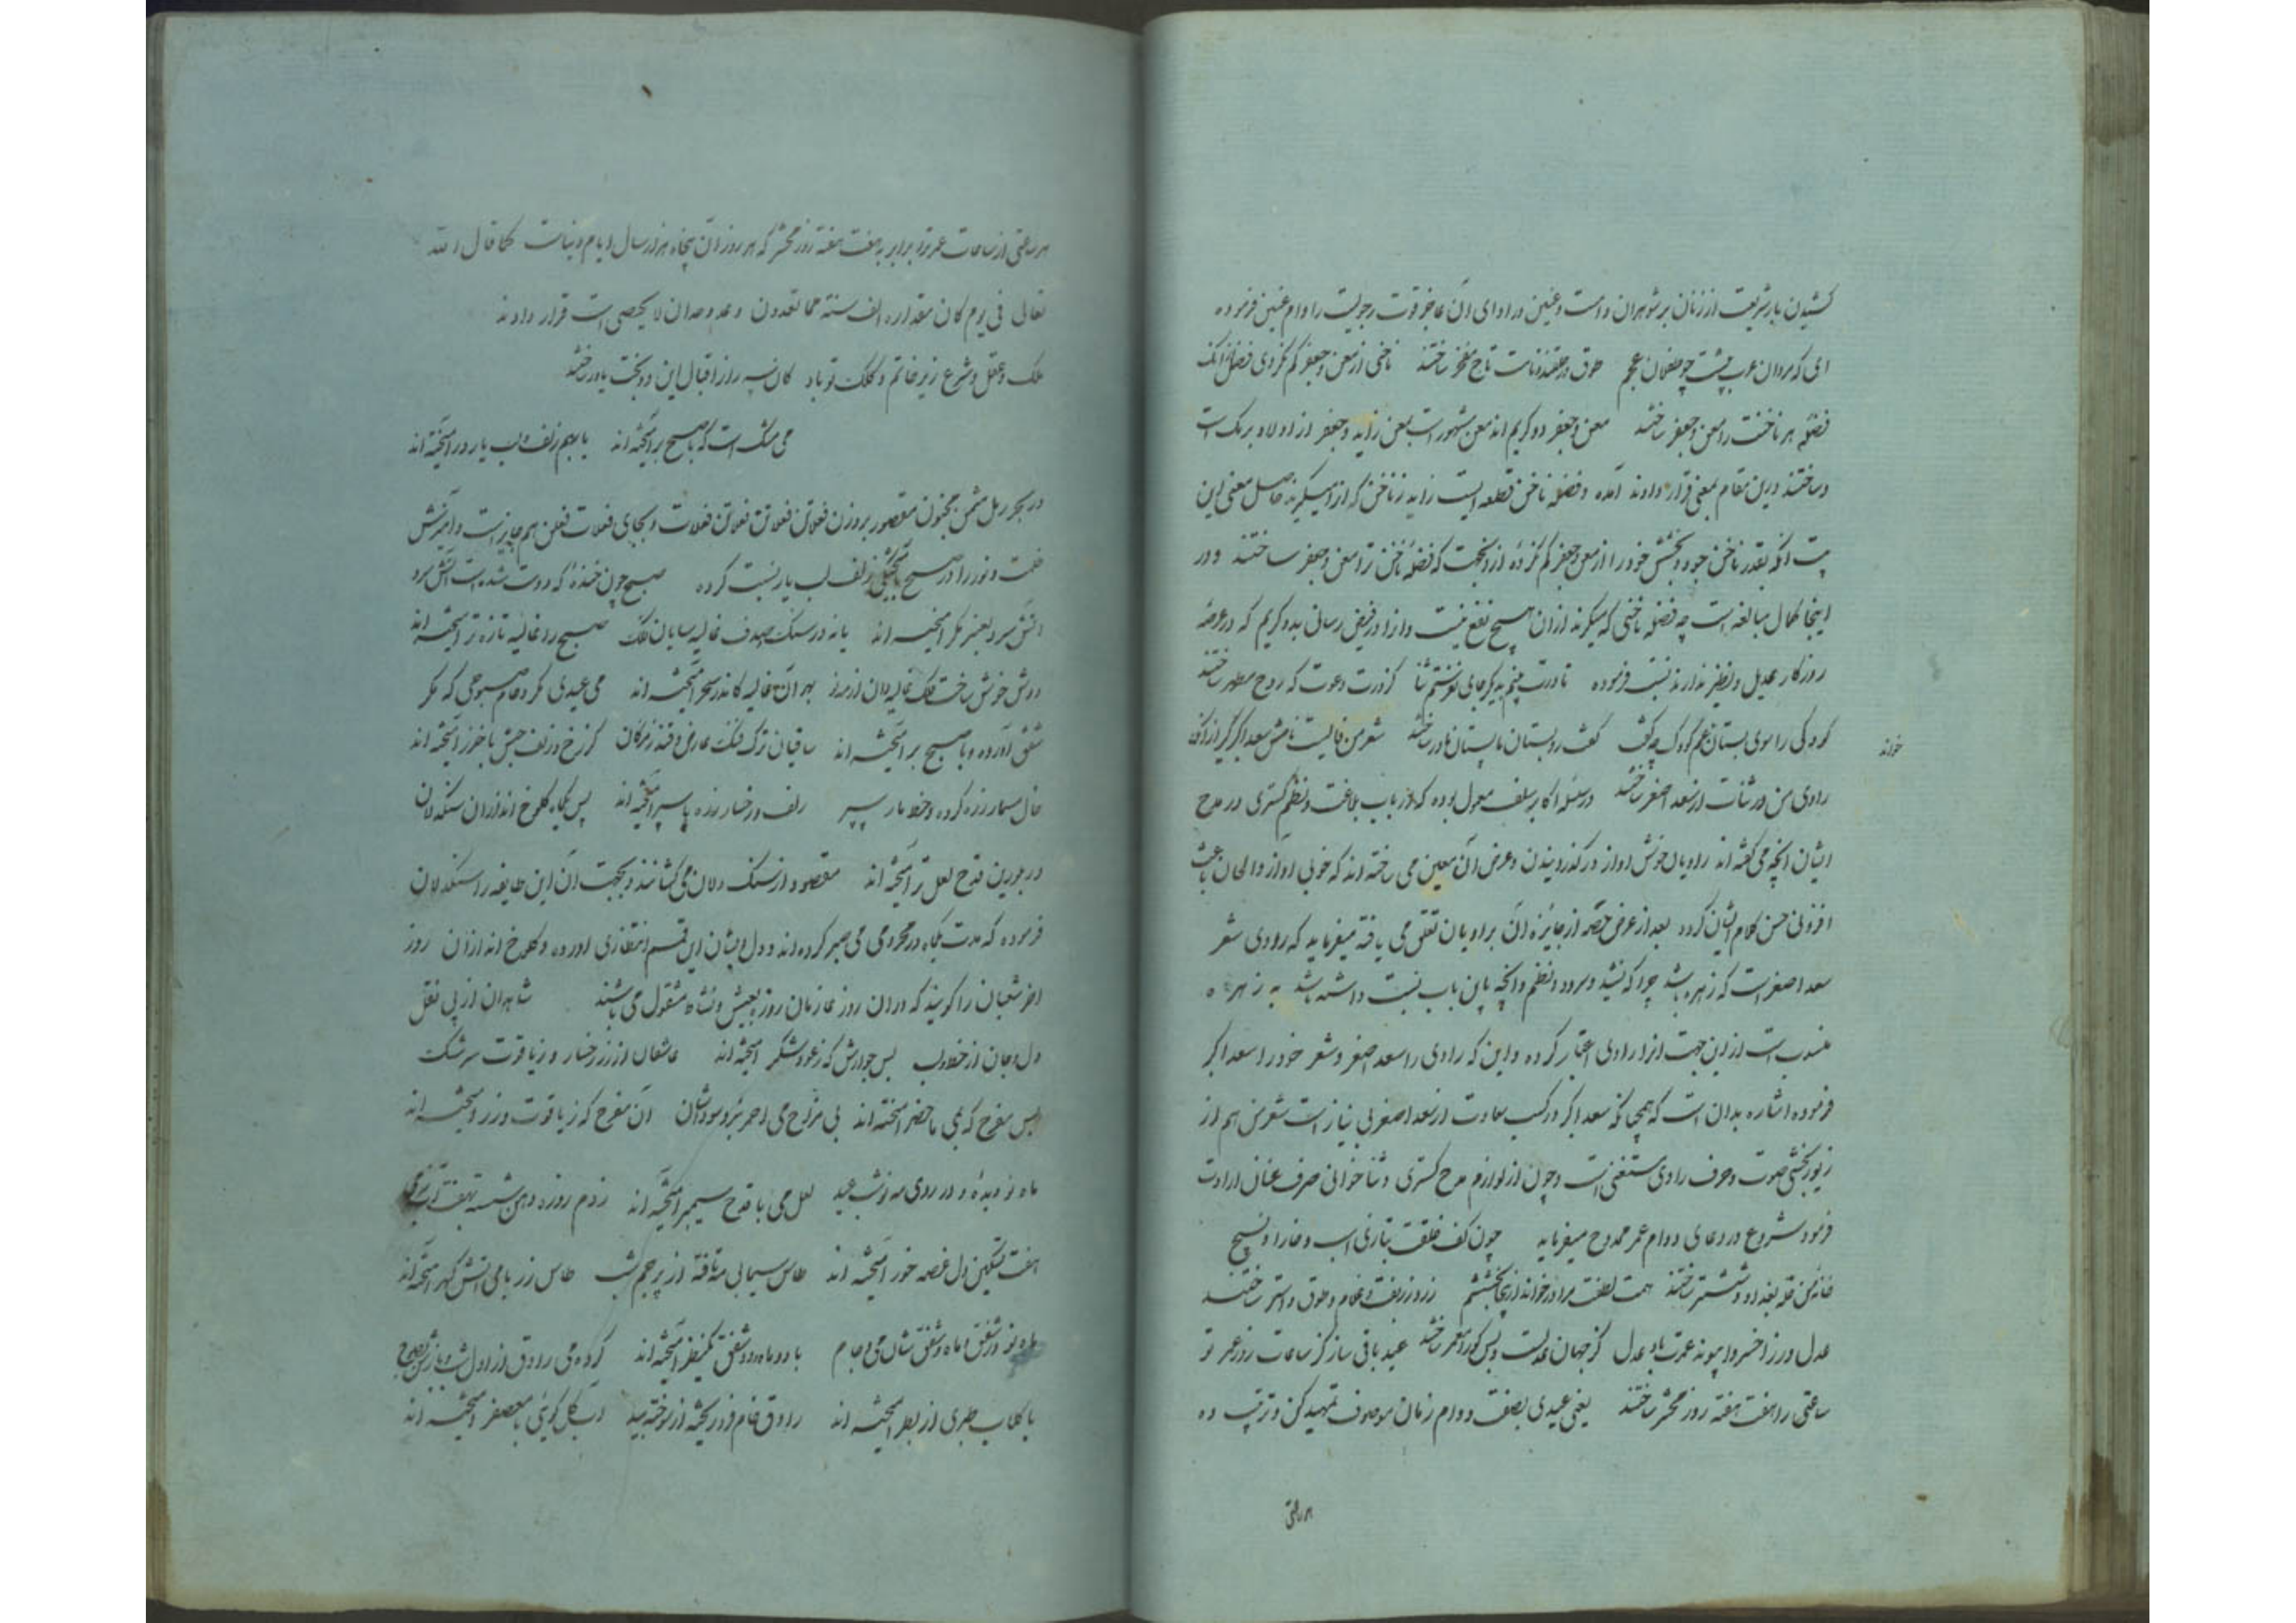 کشیدن بار شریعت از زنان بر شوهران است و عنین در ادای آن عاجز قوت رجولیت را وام عنین فرموده
ای که مردان عرب چون طفلان عجم طوق در حلقه تاج مفخر ساختند ناخنی از معن و جعفر کم نکردی فضل آنک
فضلهٔ هر ناخنت را معن و جعفر ساختند معن و جعفر دو کریم اند معن مشهور است بمعن زایده و جعفر از اولاد برمک است
و ساختند درین مقام بمعنی قرار دادند آمده و فضله ناخن قطعه ایست زاید ز ناخن که از او میگیرند حاصل معنی این
بیت آنکه بقدر ناخن جود و بخشش خود را از معن و جعفر کم نکردهٔ ازانجهت که فضلهٔ ناخن ترا معن و جعفر ساختند و در
اینجا کمال مبالغه است چه فضله ناخنی که میگیرند ازان هیچ نفع نیست و او را در فیض رسانی بدو کریم که در عرصهٔ
روزگار عدیل و نظیر ندارند نسبت فرموده
کودکی را سوی بستان عجم کودک چه گفت شعر من فالیست نامش سعد اکبر گیر ازانک
خواند
راوی من در ثنات از سعد اصغر ساختند در سلسلهٔ اکابر سلف معمول بوده که ارباب بلاغت و نظم گستری در مدح
ایشان آنچه می گفته اند راویان خوش آواز در گذرانیدن و عرض آن معین می ساخته اند که خوبی آواز و الحان باعث
افزونی حسن کلام ایشان گردد بعد از عرض حصه از جایزه آن براویان تعلق می یافته میفرماید که راوی شعر
سعد اصغر است که زهره باشد چرا که نشید و سرود و نظم و آنچه باین باب نسبت داشته باشد به زهره
منسوب است ازین جهت او را راوی اعتبار کرده و این که راوی را سعد اصغر و شعر خود را سعد اکبر
فرموده اشاره بدان است که همچنانکه سعد اکبر در کسب سعادت از سعد اصغر بی نیاز است شعر من هم از
زیور بخشی صوت و حرف راوی مستغنی است و چون از لوازم مدح گستری و ثنا خوانی صرف عنان ارادت
فرمود شروع در دعای دوام عمر ممدوح میفرماید چون کف خلقت بتازی اسب و خارا و نسیج
خانهٔ من قلهٔ بغداد و ششتر ساختند همت لطفت مرا در خواند از بخششم زر و زربفت و غلام و طوق و استر ساختند
عدل ورزا خسروا پیوند عمرت باد عدل کز جهان عدلست و بس کو را معمر ساختند عید باقی ساز کز ساعات روز عمر تو
ساعتی را هفت هفته روز محشر ساختند یعنی عیدی بصفت دوام زمان موصوف تمهید کن و ترتیب ده
هر ساعتی
هر ساعتی از ساعات عمر ترا برابر به هفت هفته روز محشر که هر روز آن پنجاه هزار سال ایام دنیاست کما قال الله
تعالی فی یوم کان مقداره الف سنة مما تعدون و عدد و حد آن لا یحصی است قرار دادند
ملک و عقل و شرع زیر خاتم و کلک تو باد کان سه را ز اقبال این دو بخت یاور ساختند
می و مشک است که با صبح برآمیخته اند یا بهم زلف و لب یار در آمیخته اند
در بحر رمل مثمن مخبون مقصور بر وزن فعلاتن فعلاتن فعلاتن فعلات و بجای فعلات فعلن هم جایز است و آمیزش
ظلمت و نور را در صبح بآمیختگی زلف لب یار نسبت کرده صبح چون خندهٔ که دوست شده است آتش سرد
آتش سرد بعنبر مگر آمیخته اند یا نه در سنگ صدف غالیه سایان فلک صبح را غالیه تازه تر آمیخته اند
دوش خوش ساخت فلک غالیه دان از مه نو بهر آن غالیه کاندر سحر آمیخته اند می عیدی نگر و جام صبوحی که مگر
شفق آورده و با صبح برآمیخته اند ساقیان ترک فنک عارض و قندز مژگان کز رخ و زلف حبش با خزر آمیخته اند
خال مسمار زره کرده و خط مار سپر زلف و رخسار زره با سپر آمیخته اند پس یکماه کلوخ اندازان سنگدلان
در بلورین قدح لعل تر آمیخته اند مقصود از سنگ دلان می کشانند و بجهت آن این طایفه را سنگدلان
فرموده که مدت یکماه در محرومی می صبر کرده اند و دل ایشان این قسم انتظاری آورده و کلوخ اندازان روز
آخر شعبان را گویند که دران روز عازمان روزه بعیش و نشاط مشغول می باشند شاهدان از پی نقل
دل و جان از خط و لب بس جوارش که ز عود و شکر آمیخته اند عاشقان از زر رخسار و ز یاقوت سرشک
بس مفرح که بمی ماحضر آمیخته اند بی مزاج می احمر نبرد سوداشان آن مفرح که ز یاقوت و زر آمیخته اند
ماه نو دیدهٔ و در روی مه نو شب عید لعل می با قدح سیم بر آمیخته اند
هفت تسکین دل غصه خور آمیخته اند طاس سیمابی مه تافته از پرچم شب طاس زر با می آتش گهر آمیخته اند
ماه نو در شفق و ماه و شفق شان می و جام با دو ماه و دو شفق یک نظر آمیخته اند
با گلاب طبری از بطر آمیخته اند راوق خام فرو ریخته از سوخته بید آب گل گوئی با معصفر آمیخته اند